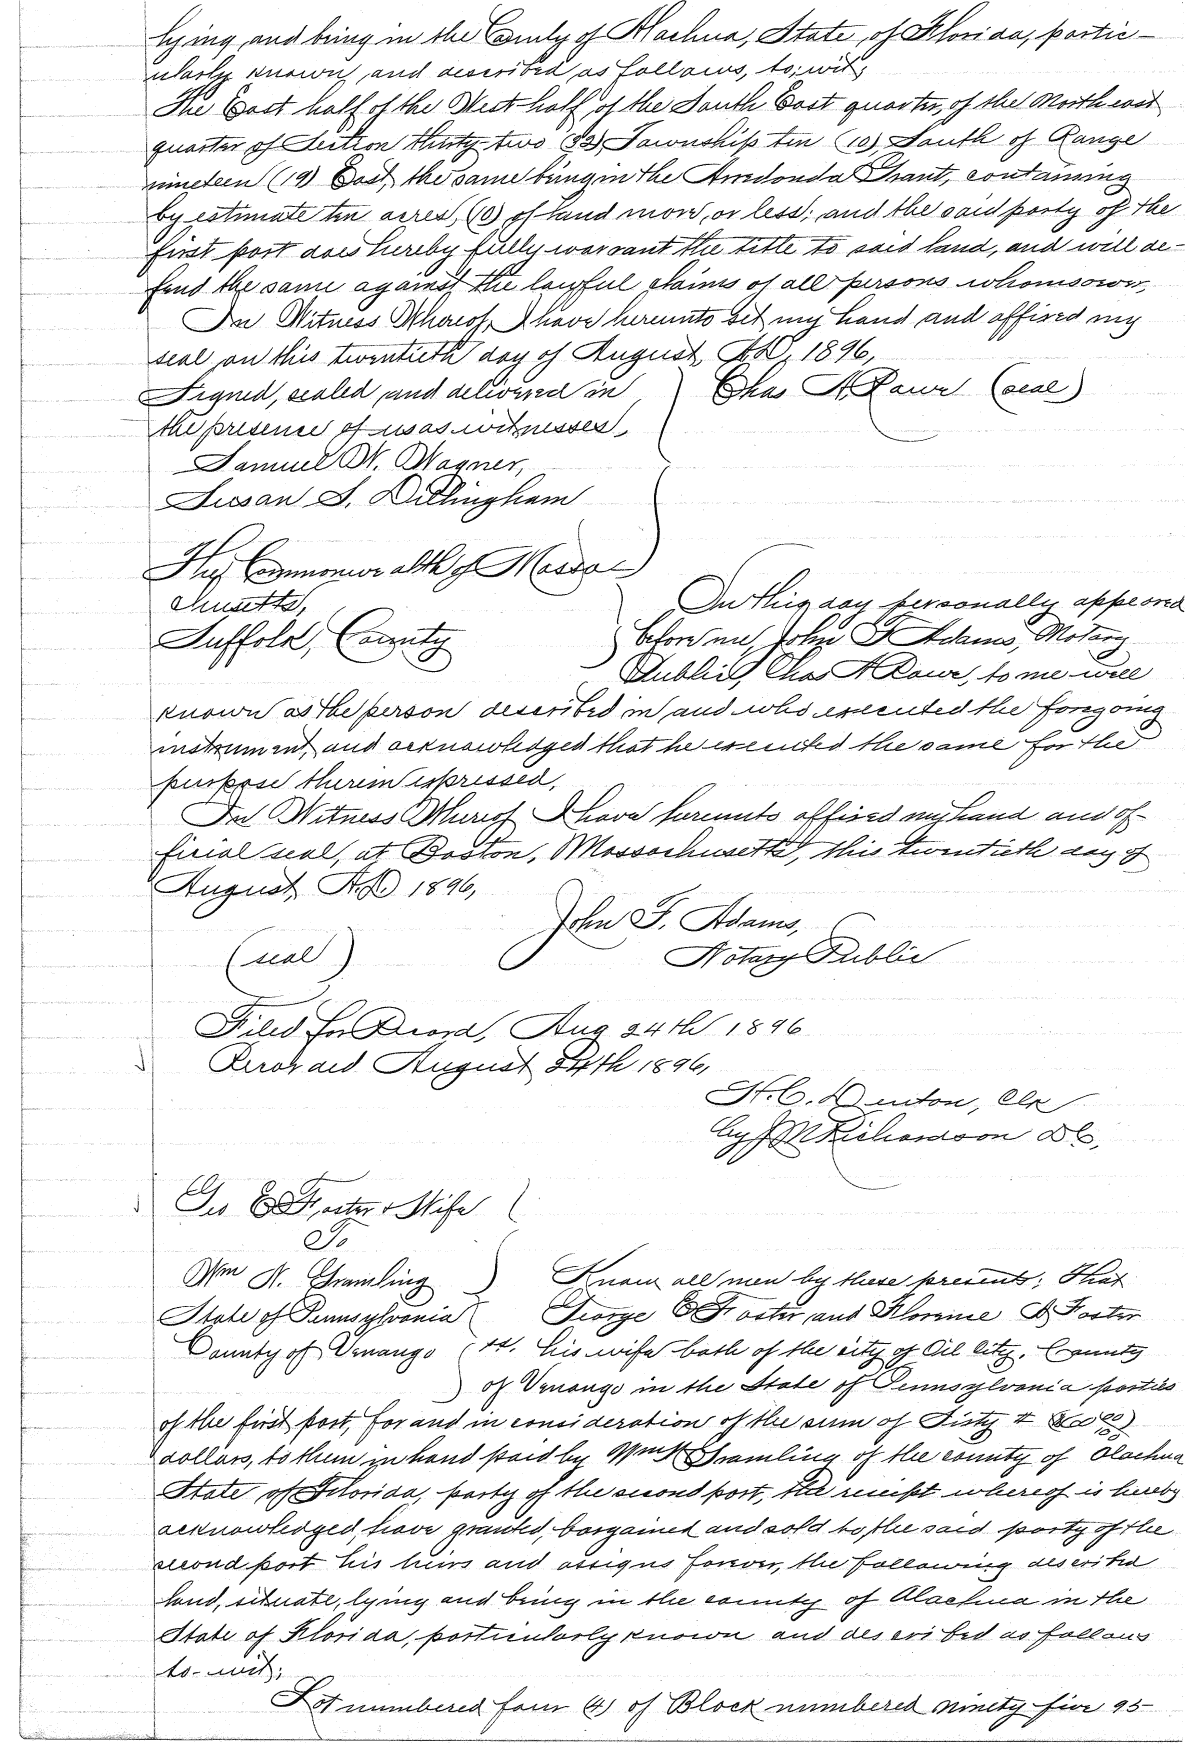 lying, and being in the County of Alachua, State, of Florida, partic-
ularly known, and described as follows, to, wit,
The East half of the West half of the South East quarter, of the North east
quarter of Section thirty-two (32) Township ten (10) South of Range
nineteen (19) East, the same being in the Arredonda Grant, containing
by estimate ten acres, (10) of land more, or less; and the said party of the
first part does hereby fully warrant the title to said land, and will de-
fend the same against the lawful claims of all persons whomsoever,
In Witness Whereof, I have hereunto set my hand and affixed my
seal on this twentieth day of August, A.D, 1896,
Signed, sealed, and delivered in
Chas A. Rawe (seal)
the presence of us as witnesses,
Samuel W. Wagner,
Susan S. Dillingham
The Commonwealth of Massa
chusetts,
Suffolk, County
On this day personally appeared
before me, John F. Adams, Notary
Public, Chas A Rawe, to me well
known as the person described in and who executed the foregoing
instrument, and acknowledged that he executed the same for the
purpose therein expressed,
In Witness Whereof I have hereunto affixed my hand and of-
ficial seal, at Boston, Massachusetts, this twentieth day of
August, A.D 1896,
John F. Adams,
(seal)
Notary Public
Filed for Record, Aug 24th 1896
Recorded August 24th 1896,
H. C. Denton, Clk
by J M Richardson D C,
Geo E Foster & Wife
To
Wm N. Gramling
Know all men by these presents; That
State of Pennsylvania
George E Foster and Florence Foster
County of Venango
his wife both of the city of Oil City, County
of Venango in the State of Pennsylvania parties
of the first part, for and in consideration of the sum of Sixty &
dollars, to them in hand paid by Wm N Gramling of the county of Alachua
State of Florida, party of the second part, the receipt whereof is hereby
acknowledged, have granted, bargained and sold to the said party of the
second part his heirs and assigns forever, the following described
land, situate, lying and being in the county of Alachua in the
State of Florida, particularly known and described as follows
to-wit;
Lot numbered four (4) of Block numbered ninety five 95